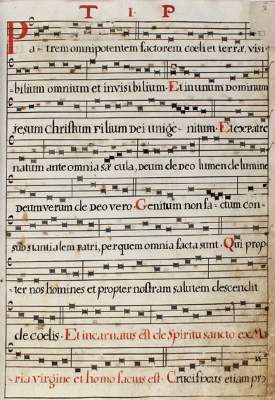 T. I. P
Patrem omnipotentem factorem cœli et terræ, visi
bilium omnium et invisibilium. Et in unum Dominum
Jesum Christum Filium Dei unigenitum. Et ex Patre
natum ante omnia sæcula, Deum de Deo lumen de lumine
Deum verum de Deo vero. Genitum non factum con-
substantialem Patri, per quem omnia facta sunt. Qui prop
ter nos homines et propter nostram salutem descendit
de cœlis. Et incarnatus est de Spiritu sancto ex Ma
ria virgine et homo factus est. Crucifixus etiam pro